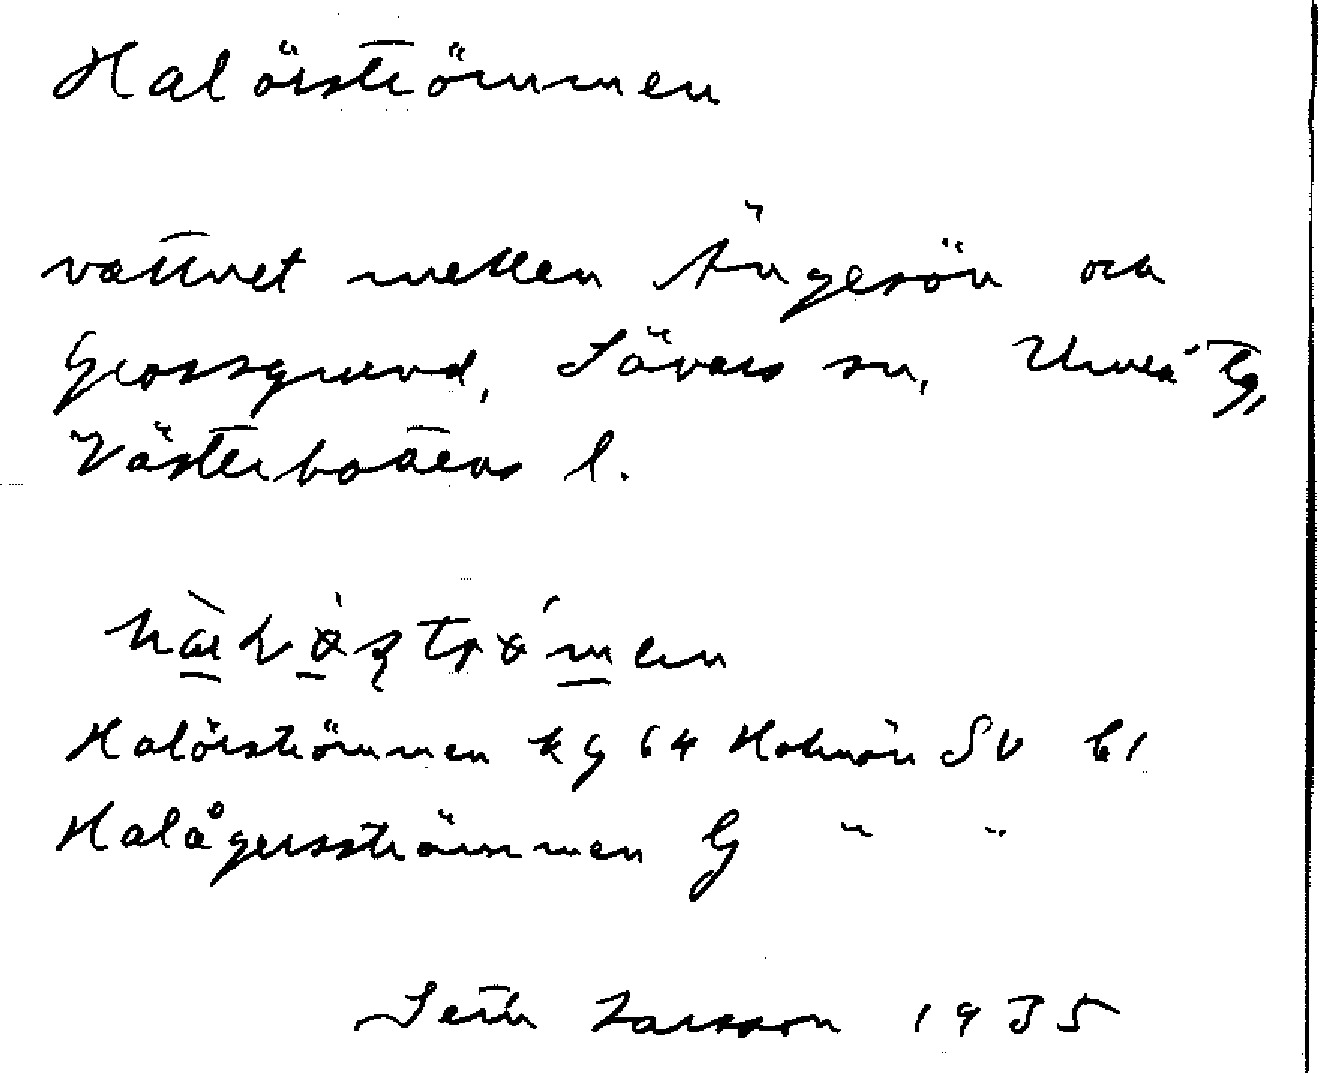 Halörströmmen
vattnet mellan Ängesön och
Grossgrund, Sävars sn,
Västerbottens l.
Halörströmmen kg 64 Holmön SV
Halågersströmmen G " "
Seth Larsson 1935